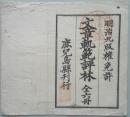 明治九年版權免許
文章軌範評林 全六冊
鹿兒島縣刊行